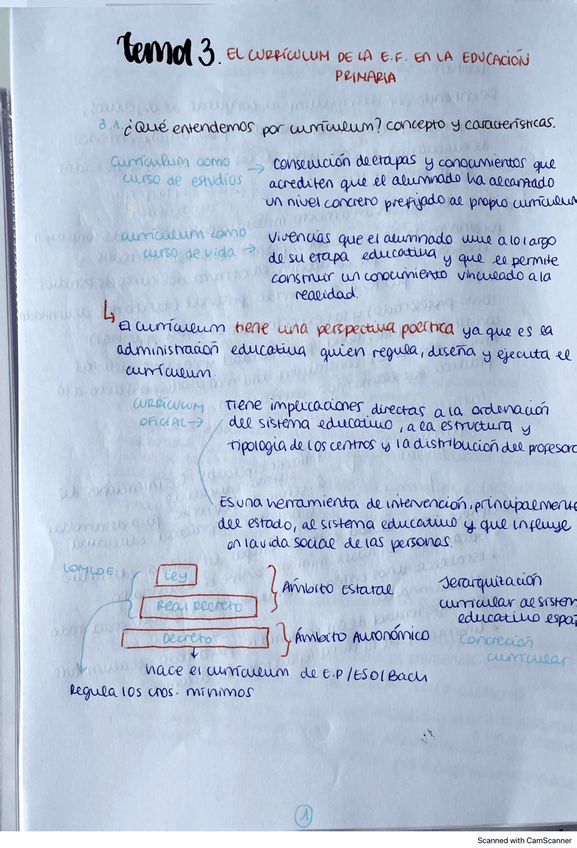 Tema 3. EL CURRÍCULUM DE LA E.F. EN LA EDUCACIÓN
PRIMARIA
3.1. ¿Qué entendemos por currículum? concepto y características.
Currículum como
curso de estudios →
consecución de etapas y conocimientos que
acrediten que el alumnado ha alcanzado
un nivel concreto prefijado al propio currículum
currículum como
curso de vida →
Vivencias que el alumnado vive a lo largo
de su etapa educativa y que le permite
construir un conocimiento vinculado a la
realidad.
↳ El currículum tiene una perspectiva política ya que es la
administración educativa quien regula, diseña y ejecuta el
currículum.
CURRÍCULUM
OFICIAL →
Tiene implicaciones directas a la ordenación
del sistema educativo, a la estructura y
tipología de los centros y la distribución del profesora
Es una herramienta de intervención, principalmente
del estado, al sistema educativo y que influye
en la vida social de las personas.
LOMLOE
Ley
Real Decreto
Ámbito Estatal
Decreto
Ámbito Autonómico
Jerarquización
curricular al sistem
educativo espa
Concreción
curricular
nace el currículum de E.P/ESO/Bach
Regula los cnos. mínimos
1
Scanned with CamScanner